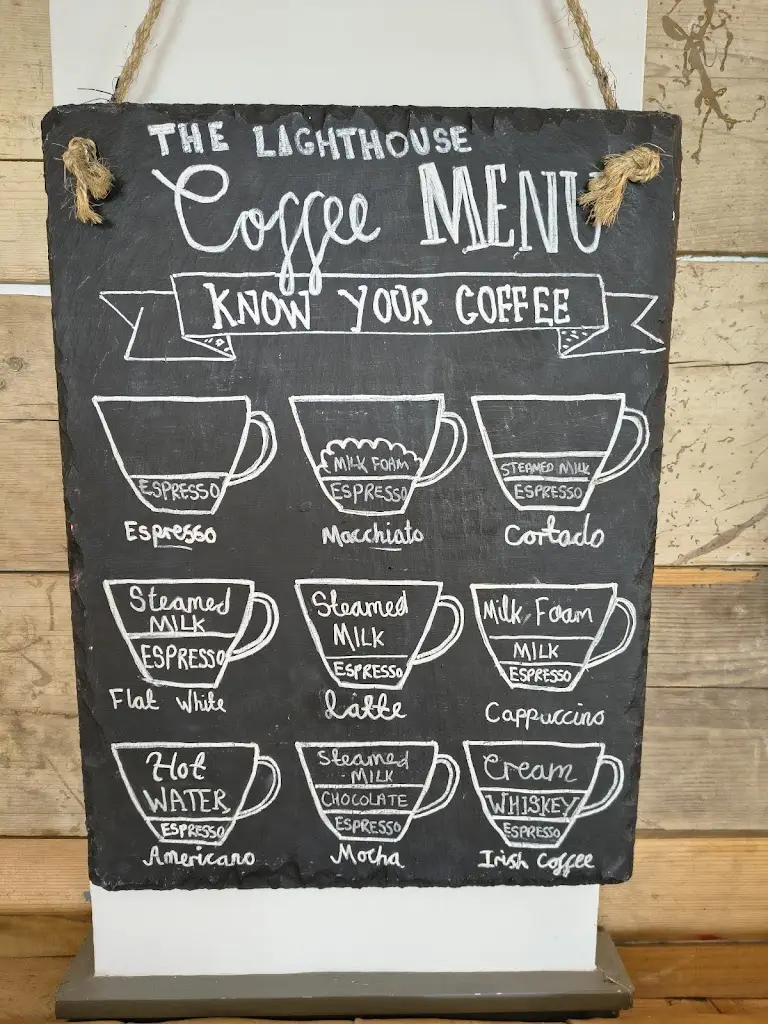 THE LIGHTHOUSE
Coffee MENU
KNOW YOUR COFFEE
ESPRESSO
Espresso
MILK FOAM
ESPRESSO
Macchiato
STEAMED MILK
ESPRESSO
Cortado
Steamed
MILK
ESPRESSO
Flat White
Steamed
MILK
ESPRESSO
Latte
Milk Foam
MILK
ESPRESSO
Cappuccino
Hot
WATER
ESPRESSO
Americano
Steamed
MILK
CHOCOLATE
ESPRESSO
Mocha
Cream
WHISKEY
ESPRESSO
Irish Coffee